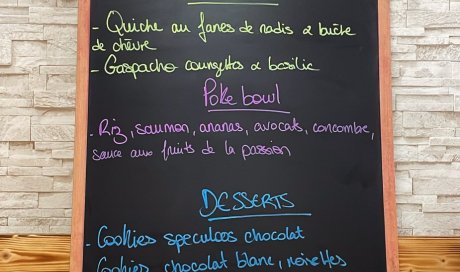 - Quiche au fanes de radis & bûche
de chèvre
- Gaspacho courgettes & basilic
Poke bowl
- Riz, saumon, ananas, avocats, concombre,
sauce aux fruits de la passion
DESSERTS
- Cookies speculoos chocolat
- Cookies chocolat blanc, noisettes